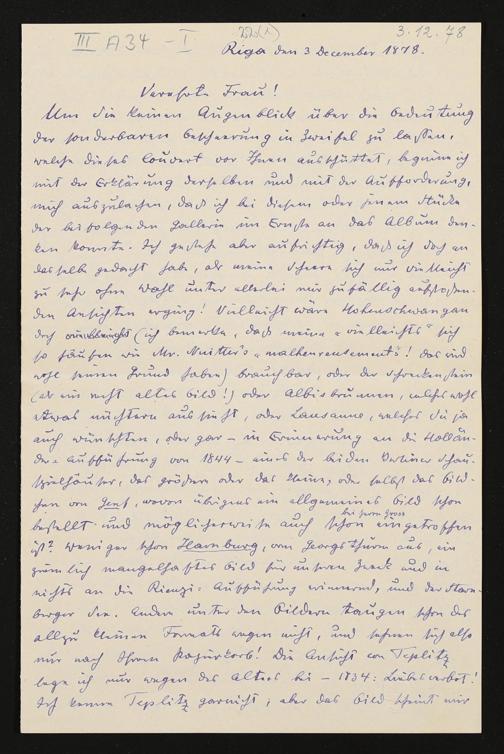 III A 34 - I
3.12.78
Riga den 3 December 1878.
Verehrte Frau!
Um Sie keinen Augenblick über die Bedeutung
der sonderbaren Bescheerung in Zweifel zu lassen,
welche dieses Couvert vor Ihnen ausschüttet, beginne ich
mit der Erklärung derselben und mit der Aufforderung,
mich auszulachen, dass ich bei diesem oder jenem Stücke
der beifolgenden Gallerie im Ernste an das Album den-
ken konnte. Ich gestehe aber aufrichtig, dass ich doch an
dasselbe gedacht habe, als meine Scheere sich nur vielleicht
zu sehr ohne Wahl unter allerlei mir zufällig aufstossen-
den Ansichten erging! Vielleicht wäre Hohenschwangau
doch (ich bemerke, dass meine "vielleichts" sich
so häufen wie Mr. Nuitter's "malheureusements"! das wird
wohl seinen Grund haben) brauchbar, oder der Schreckenstein
(als ein recht altes Bild!) oder Albisbrunnen, welches wohl
etwas nüchtern aussieht, oder Lausanne, welches Sie ja
auch wünschten, oder gar - in Erinnerung an die Hollän-
der-Aufführung von 1844 - eines der beiden Berliner Schau-
spielhäuser, das grössere oder das kleine, oder selbst das Bild-
chen von Genf, wovon übrigens ein allgemeines Bild schon
bestellt und möglicherweise auch schon bei Herrn Gross eingetroffen
ist? Weniger schon Hamburg, vom Georgsthurm aus, ein
ziemlich mangelhaftes Bild für unseren Zweck und in
nichts an die Rienzi-Aufführung erinnernd, und der Starn-
berger See. Andere unter den Bildern taugen schon des
allzu kleinen Formats wegen nicht, und sehnen sich also
nur nach Ihrem Papierkorb! Die Ansicht von Teplitz
lege ich nur wegen des Alters bei - 1834: Liebesverbot!
Ich kenne Teplitz garnicht; aber das Bild scheint mir